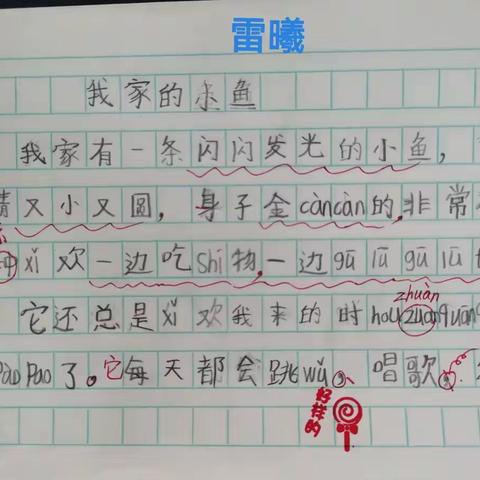 雷曦
我家的小鱼
我家有一条闪闪发光的小鱼，
睛又小又圆，身子金càncàn的，非常
xǐ欢一边吃shí物，一边gū lū gū lū
zhuàn
它还总是xǐ欢我来的时hou zuàn quān
pào pao了。它每天都会跳wǔ、唱歌。
好样的